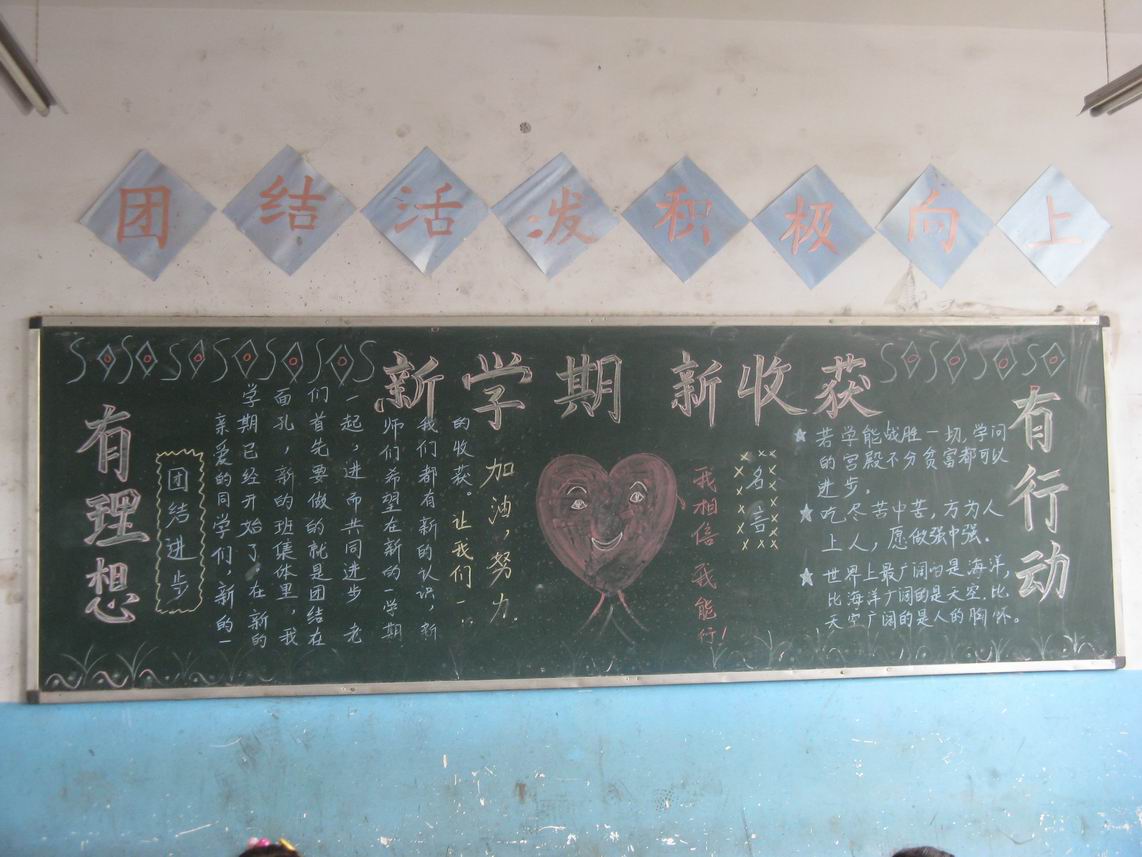 团结活泼积极向上
新学期 新收获
有理想
团结进步
亲爱的同学们,新的一
学期已经开始了。在新的
面孔,新的班集体里,我
们首先要做的就是团结在
一起,进而共同进步 老
师们希望在新的一学期
我们都有新的认识,新
的收获。让我们一:
加油,努力.
我相信 我能行!
名言
☆ 若学能战胜一切,学问
的宫殿不分贫富都可以
进步。
☆ 吃尽苦中苦,方为人
上人,愿做强中强。
☆ 世界上最广阔的是海洋,
比海洋广阔的是天空,比
天空广阔的是人的胸怀。
有行动